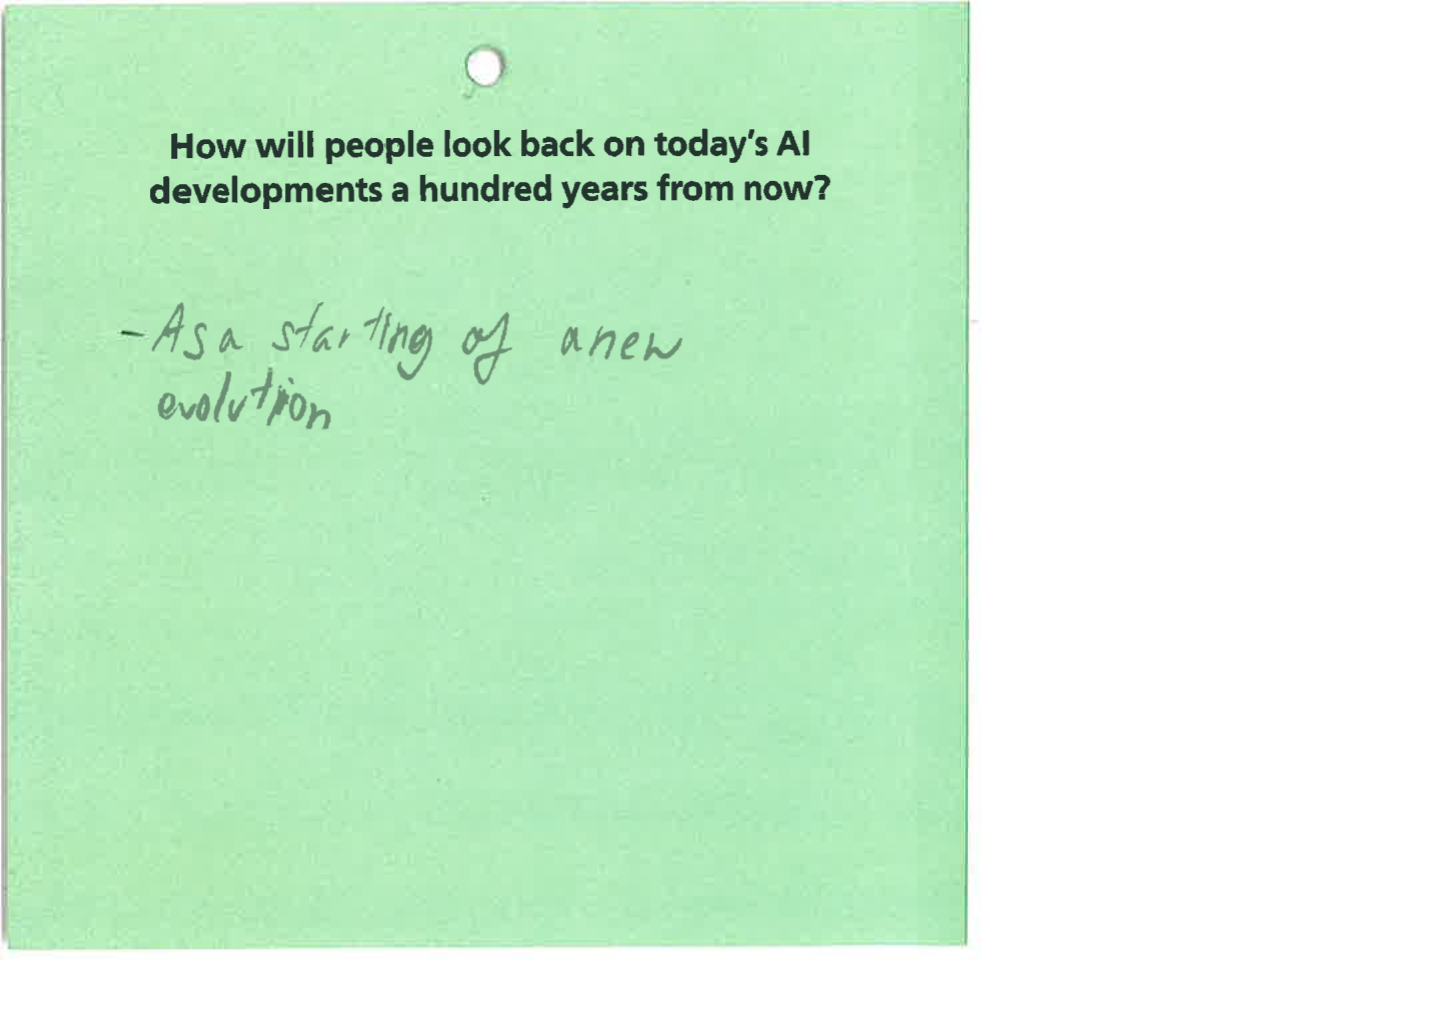 How will people look back on today's AI
developments a hundred years from now?
- As a starting of a new
evolution